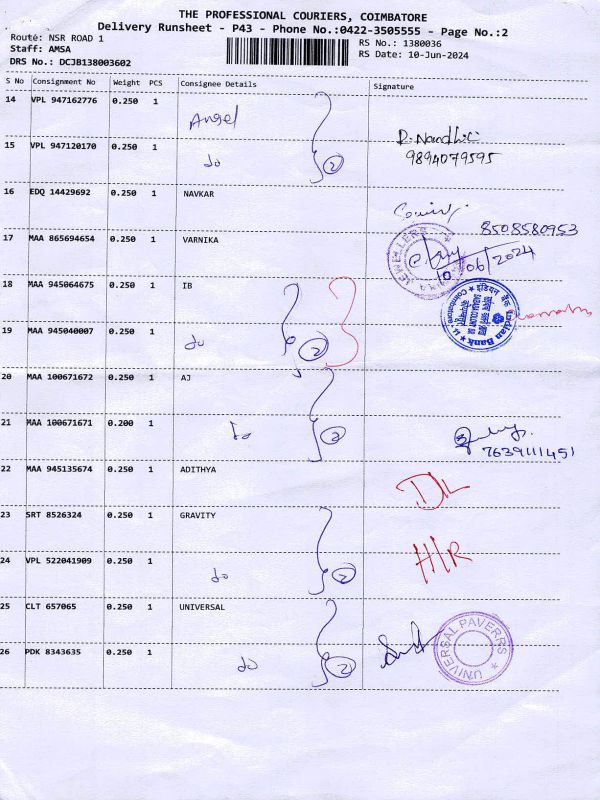 THE PROFESSIONAL COURIERS, COIMBATORE
Delivery Runsheet - P43 - Phone No.:0422-3505555 - Page No.:2
Route: NSR ROAD 1
RS No.: 1380036
Staff: AMSA
RS Date: 10-Jun-2024
DRS No.: DCJB138003602
S No Consignment No Weight PCS Consignee Details Signature
14 VPL 947162776 0.250 1 Angel
15 VPL 947120170 0.250 1 do 2 D. Nandhini
9894079595
16 EDQ 14429692 0.250 1 NAVKAR
8508580953
17 MAA 865694654 0.250 1 VARNIKA 10/06/2024
JEWELLERS
18 MAA 945064675 0.250 1 IB
इंडियन बैंक Indian Bank
Coimbatore
19 MAA 945040007 0.250 1 do 2
20 MAA 100671672 0.250 1 AJ
21 MAA 100671671 0.200 1 do 2
7639111451
22 MAA 945135674 0.250 1 ADITHYA DL
23 SRT 8526324 0.250 1 GRAVITY
24 VPL 522041909 0.250 1 do 2 HIR
25 CLT 657065 0.250 1 UNIVERSAL
26 PDK 8343635 0.250 1 do 2 UNIVERSAL PAVERRS